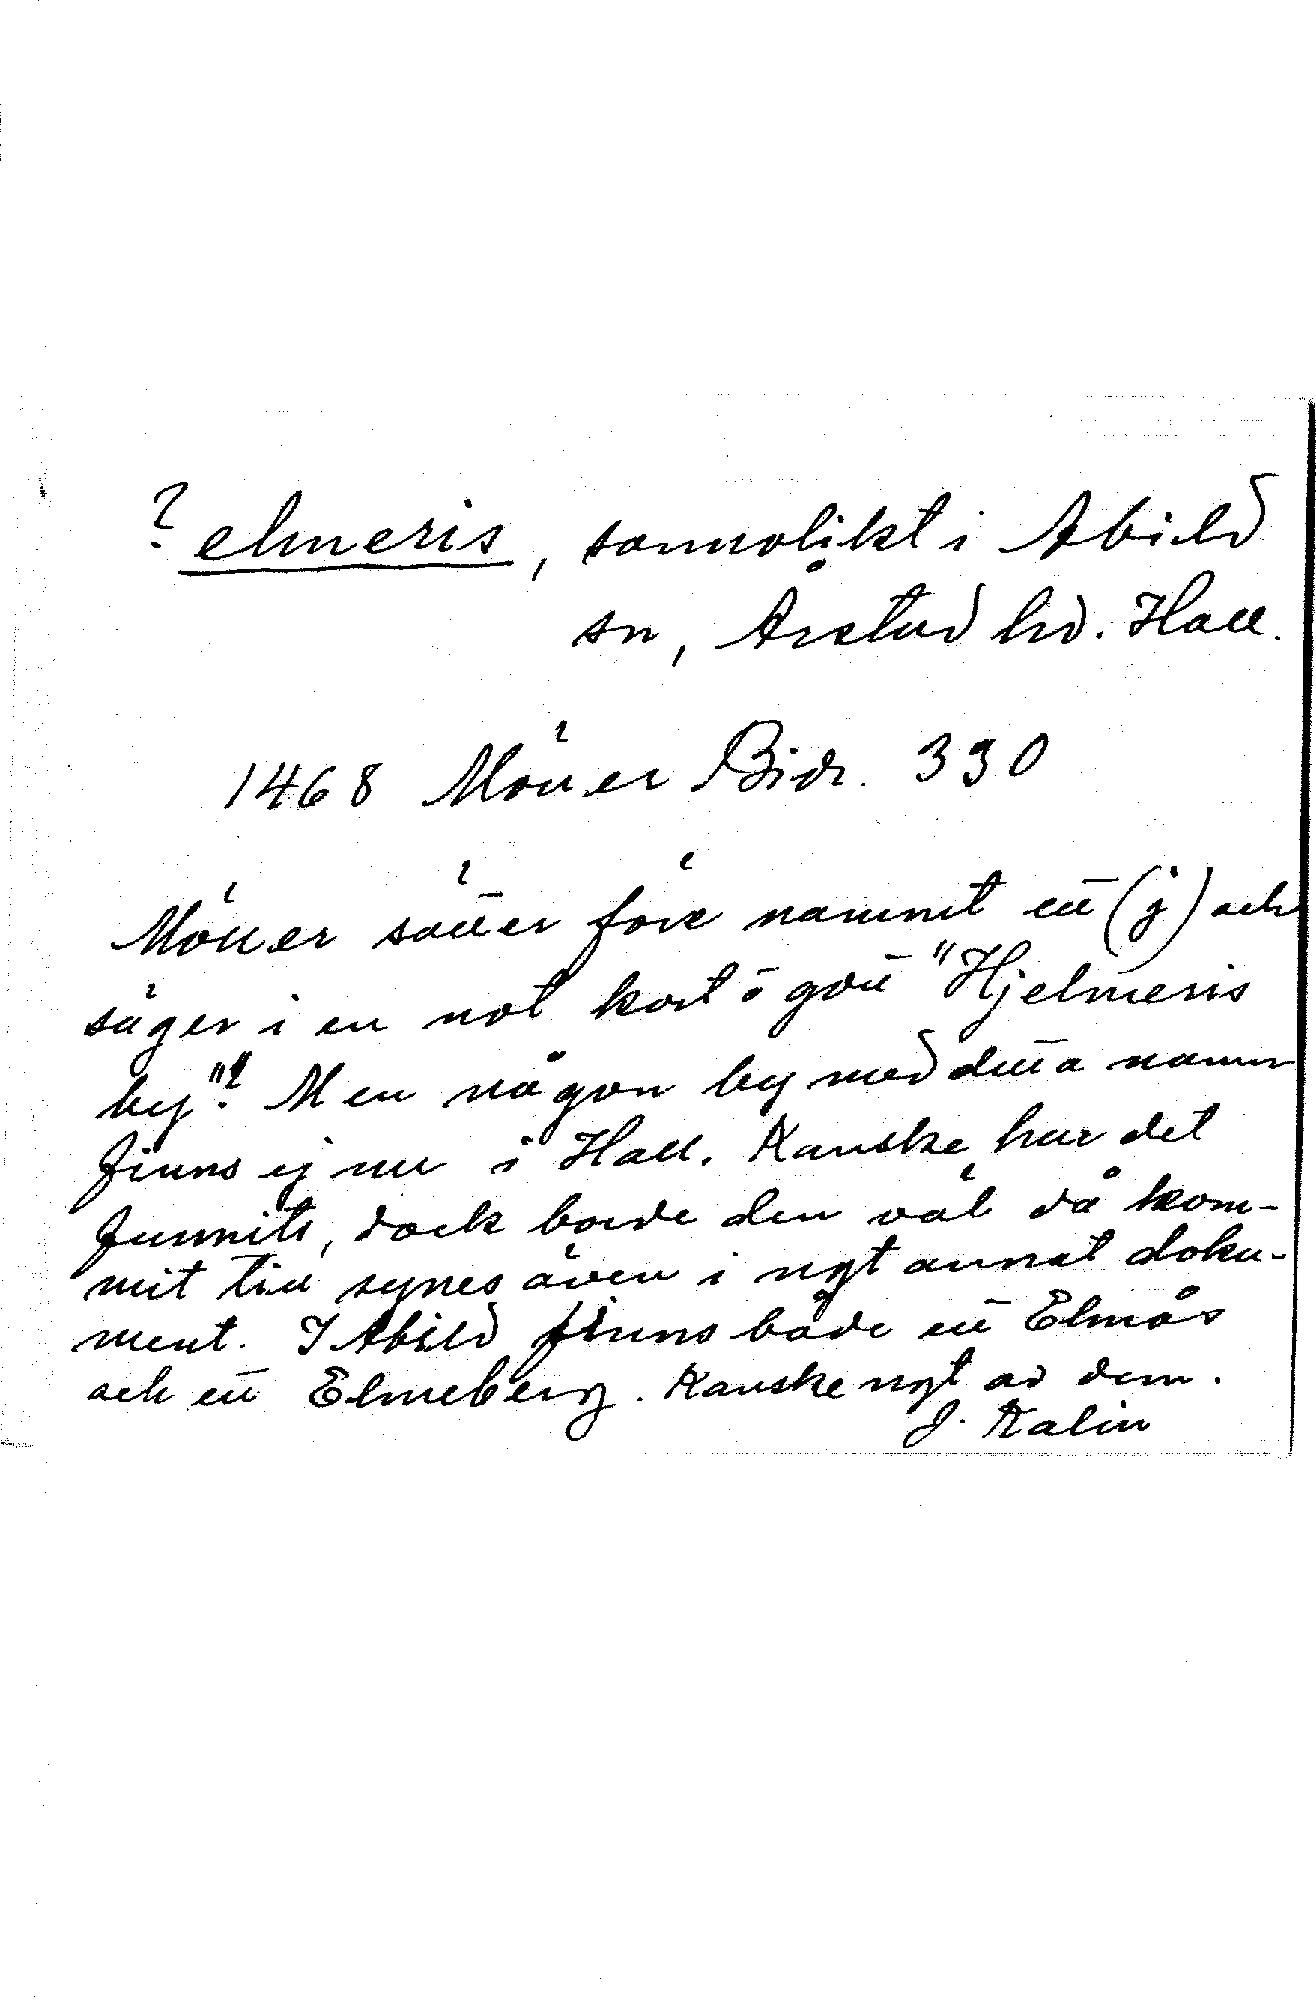 ? elmeris, sannolikt i Abild
sn, Årstad hd. Hall.
1468 Möller Bidr. 330
Möller sätter före namnet ett (j) och
säger i en not kort o gott "Hjelmeris
by"? Men någon by med detta namn
finns ej nu i Hall. Kanske har det
funnits, dock borde den väl då kom-
mit till synes även i ngt annat doku-
ment. I Abild finns både ett Elmås
och ett Elmeberg. Kanske ngt av dem.
J. Kalin